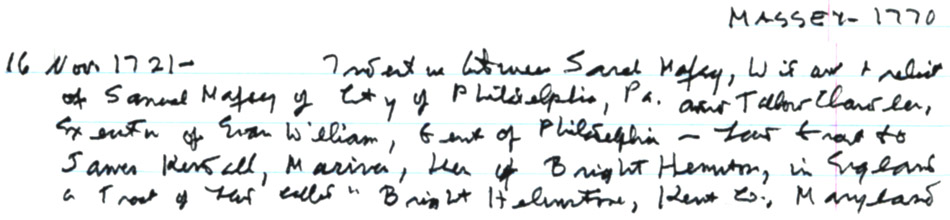 MASSEY - 1770
16 Nov. 1721 - Indenture between Sarah Massey, Widow and relict
of Samuel Massey of City of Philadelphia, Pa. and Tallow Chandler,
Executor of Evan William, Gent of Philadelphia -
James Kendall, Mariner, of Bright Hemston, in England
a Tract of called "Bright Helmstone, Kent Co., Maryland